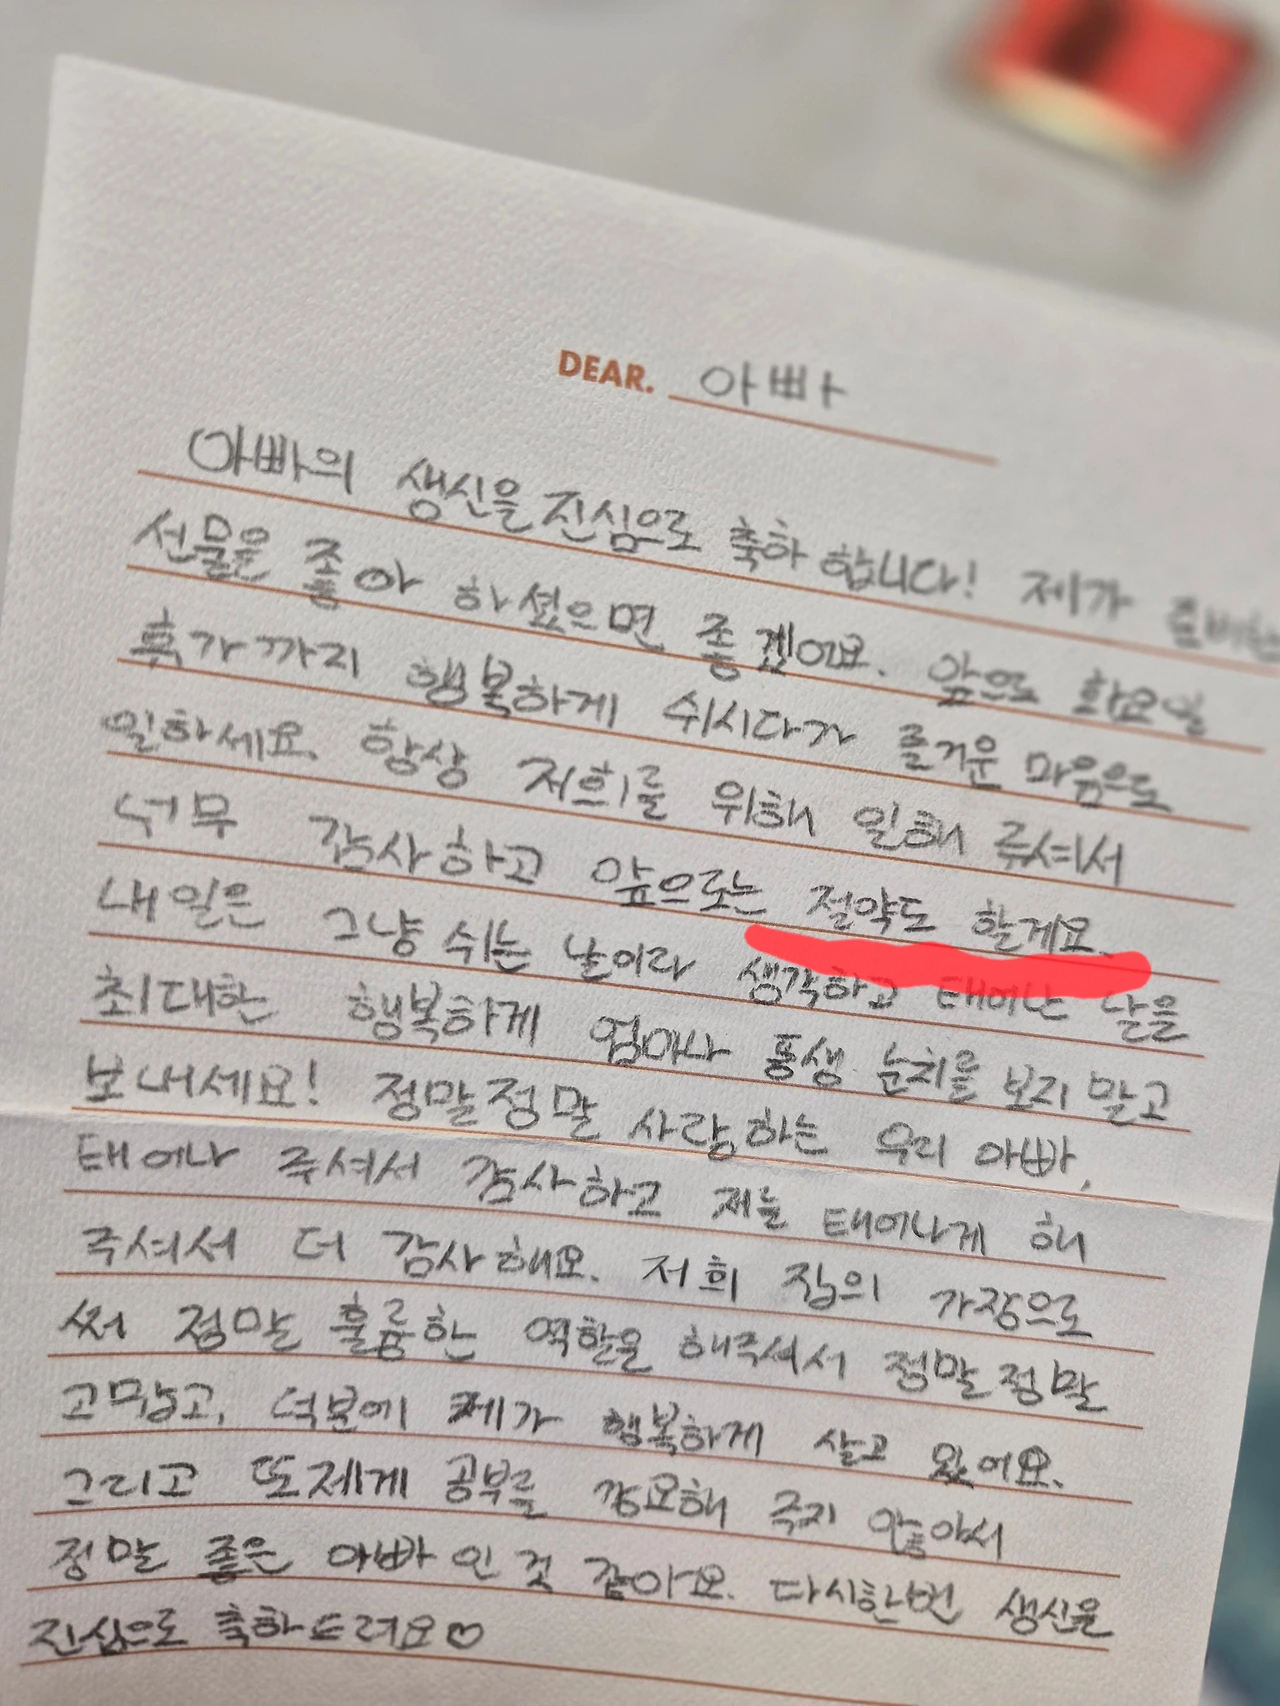 DEAR. 아빠
아빠의 생신을 진심으로 축하 합니다! 제가 준비한
선물은 좋아 하셨으면 좋겠어요. 앞으로 화요일
휴가까지 행복하게 쉬시다가 즐거운 마음으로
일하세요. 항상 저희를 위해 일해 주셔서
너무 감사하고 앞으로는 절약도 할게요.
내일은 그냥 쉬는 날이라 생각하고 태어난 날을
최대한 행복하게 엄마나 동생 눈치를 보지 말고
보내세요! 정말정말 사랑하는 우리 아빠,
태어나 주셔서 감사하고 저를 태어나게 해
주셔서 더 감사해요. 저희 집의 가장으로
써 정말 훌륭한 역할을 해주셔서 정말정말
고맙고, 덕분에 제가 행복하게 살고 있어요.
그리고 또제게 공부를 강요해 주지 않아서
정말 좋은 아빠 인 것 같아요. 다시한번 생신을
진심으로 축하드려요♡